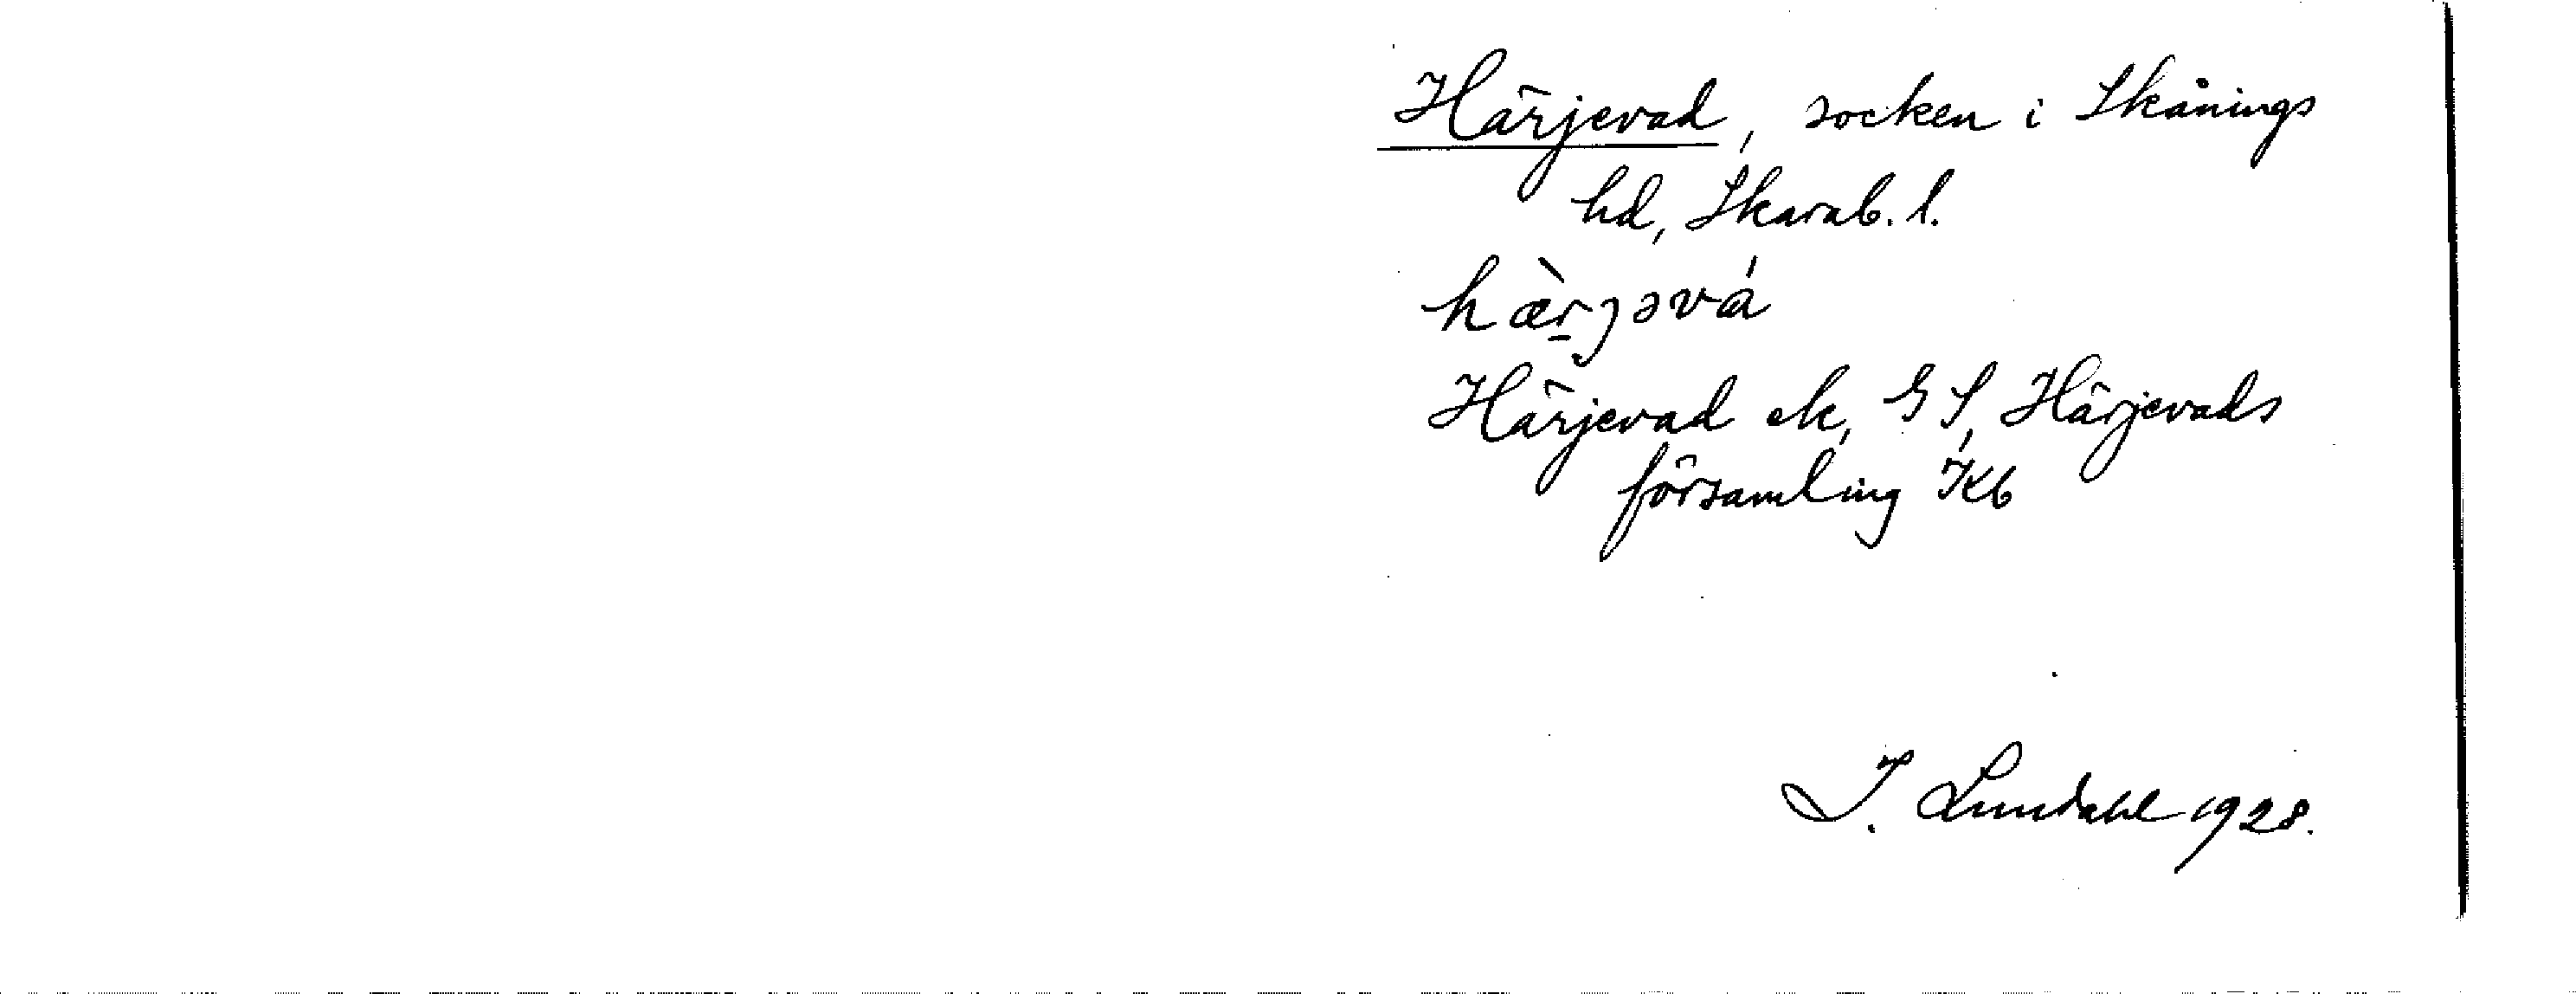 Härjevad, socken i Skånings
hd, Skarab. l.
hæ̀r̠jəvá
Härjevad ek, GS, Härjevads
församling Kb
I. Lundahl 1928.